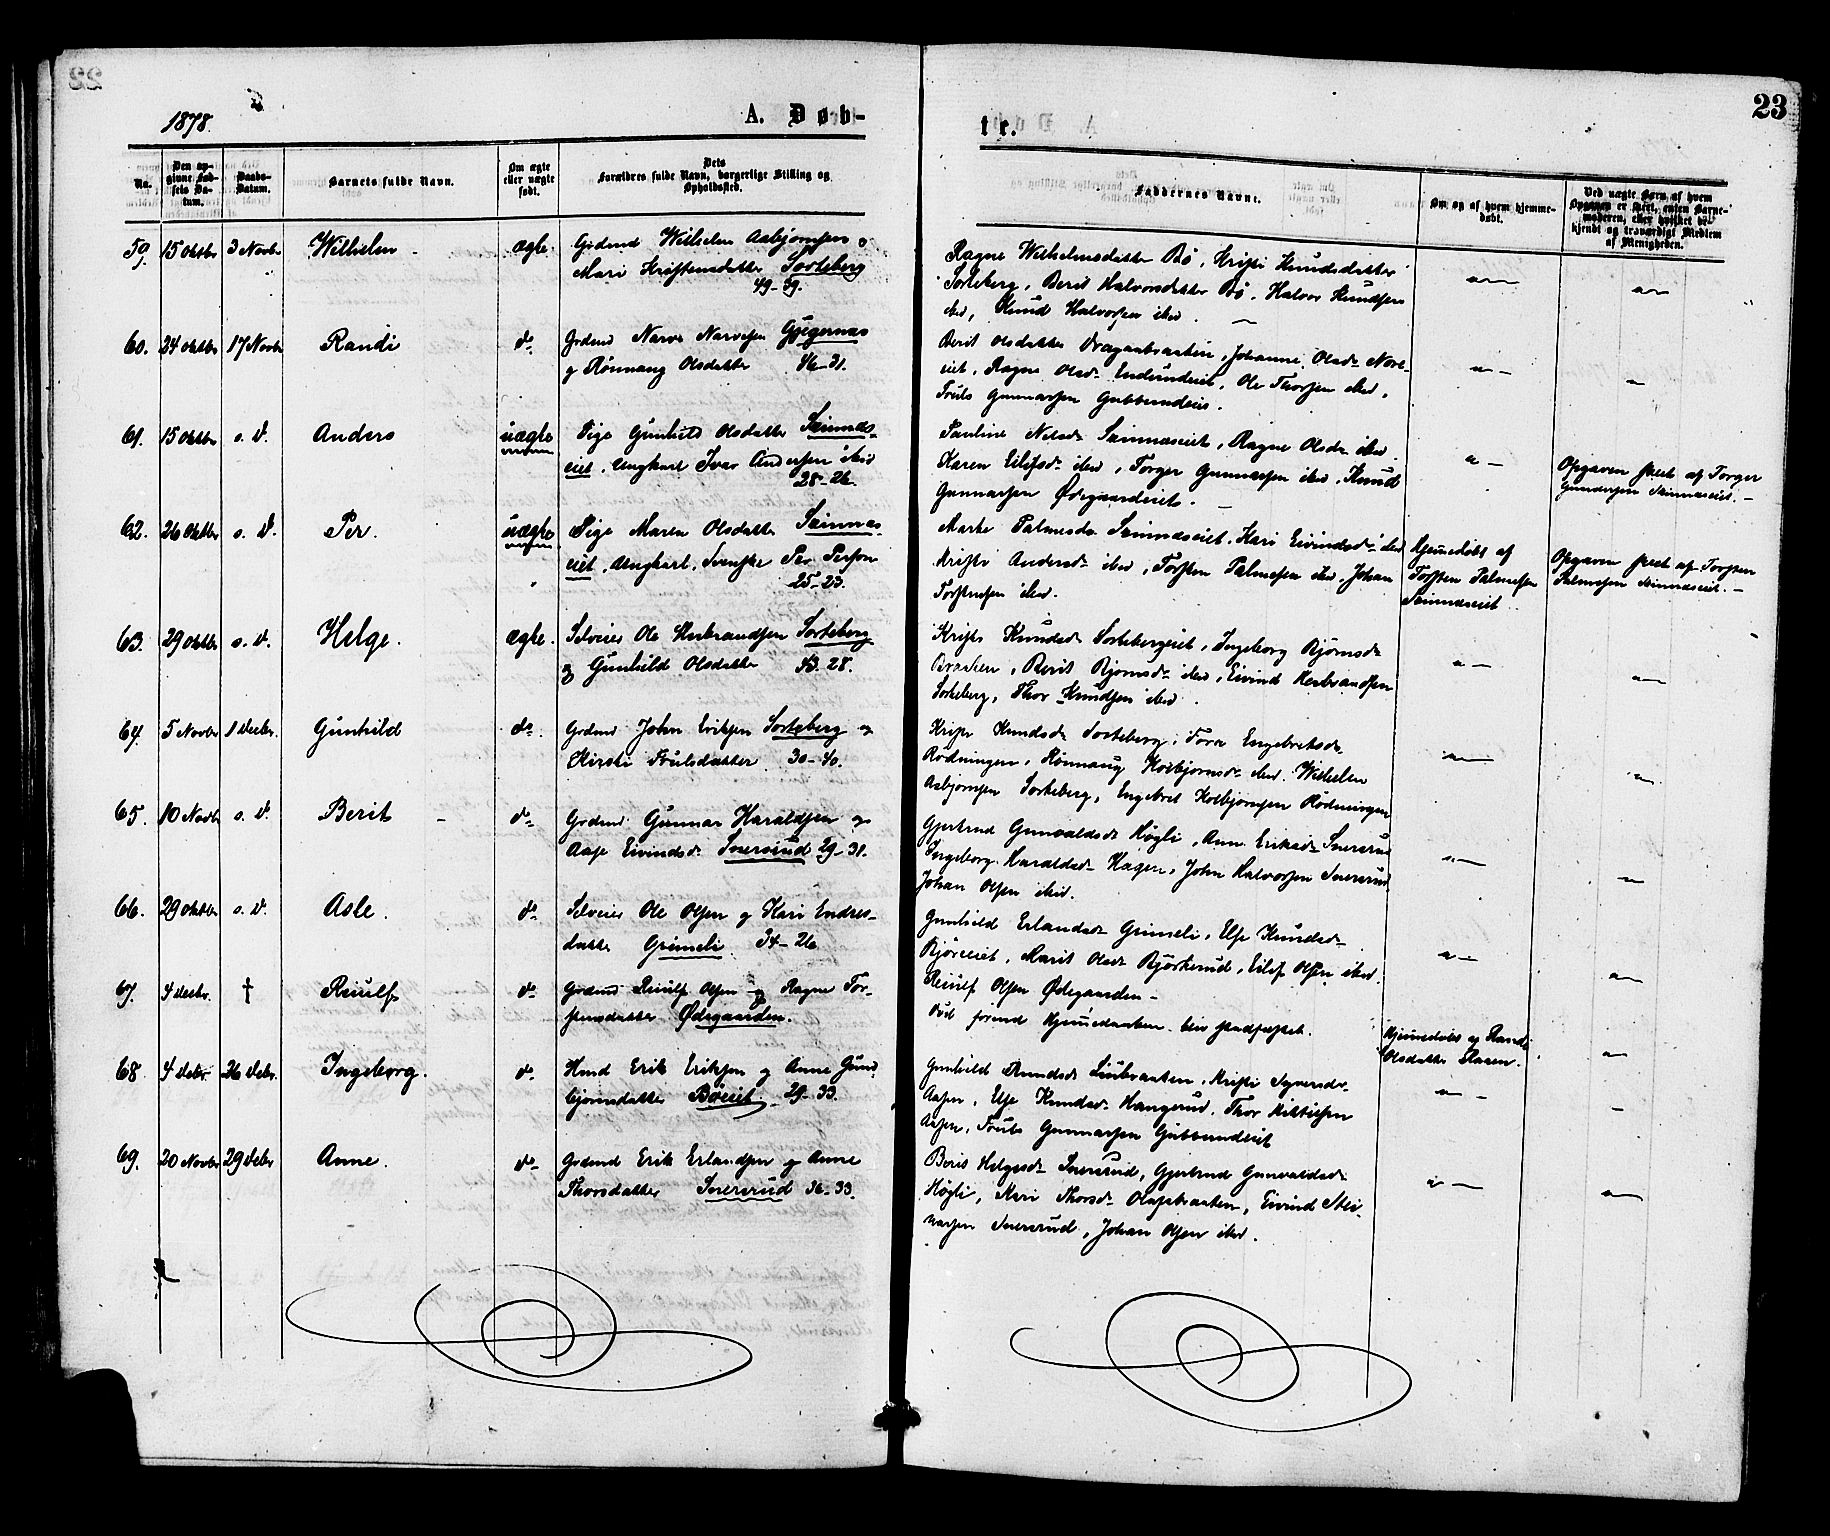 22
23
1878.
A. Døb-
te.
No.
Den op-
givne Fød-
sels Da-
tum.
Daabs-
Datum.
Barnets fulde Navn.
Om ægte
eller uægte
født.
Dets
Forældres fulde Navn, borgerlige Stilling og
Opholdssted.
Faddernes Navne.
Om og af hvem hjemme-
døbt.
Ved uægte Børn af hvem
Opgaven er skeet, enten Barne-
moderen, eller hvilket be-
kjendt og troværdigt Medlem
af Menigheden.
59. 15 Oktbr 3 Novbr Wilhelm ægte. Grdmd Wilhelm Asbjørnsen o
Mari Kristensdatter Sorteberg
49-39.
Ragne Wilhelmsdatter Bø, Kristi Knudsdatter
Sorteberg, Berit Halvorsdatter Bø, Halvor Knudsen
ibd, Knud Halvorsen ibd.
60. 24 Oktbr 17 Novbr Randi do Grdmd Narve Narvesen Gjegernæs
og Rønnaug Olsdatter 46-31.
Berit Olsdatter Dragaabraaten, Johanne Olsdr Nore-
eiet, Ragne Olsdr Enderudeiet, Ole Thorsen ibd,
Truls Gunnarsen Gubberudeiet.
61. 15 Oktbr s. d. Anders uægte Pige Gunhild Olsdatter Simnæs-
eiet, Ungkarl Ivar Andersen ibid
28-26.
Pauline Nelsdr Simnæseiet, Ragne Olsdr ibd.
Karen Eilifsdr ibd, Torger Gunnarsen ibd, Knud
Gunnarsen Ødegaardeiet.
Opgaven skeet af Torger
Gundersen Simnæseiet.
62. 26 Oktbr s. d. Per. uægte Pige Maren Olsdatter Simnæs
eiet, Ungkarl, Svenske Per Person
25-23.
Marte Palmesdr Simnæseiet, Kari Eivindsdr ibd
Kristi Andersdr ibd, Torsten Palmesen ibd, Johan
Torstensen ibd.
Hjemmedøbt af
Torsten Palmesen
Simnæseiet.
Opgaven skeet af Torsten
Palmesen Simnæseiet.
63. 29 Oktbr s. d. Helge. ægte. Selveier Ole Herbrandsen Sorteberg
og Gunhild Olsdatter 43-28.
Kristi Knudsdr Sortebergeiet, Ingeborg Bjørnsdr
Braaten, Berit Bjørnsdr ibd, Eivind Herbrandsen
Sorteberg, Thor Knudsen ibd.
64. 5 Novbr 1 Decbr. Gunhild do. Grdmd John Eriksen Sorteberg og
Kirsti Trulsdatter 30-40.
Kristi Knudsdr Sorteberg, Tore Engebretsdr
Rødningen, Rønnaug Kolbjørnsdr ibd. Wilhelm
Asbjørnsen Sorteberg, Engebret Kolbjørnsen Rødningen
65. 10 Novbr s. d. Berit do Grdmd Gunnar Haraldsen og
Aase Eivindsdr Snersrud 29-31.
Gjertrud Gunvaldsdr Høgli, Anne Eriksdr Snersrud
Ingeborg Haraldsdr Hagen, John Halvorsen Snersrud
Johan Olsen ibd.
66. 29 Oktbr s. d. Asle. do Selveier Ole Olsen og Kari Endres-
datter Grimeli 34-26
Gunhild Erlandsdr Grimeli, Else Knudsdr
Bjøreiet, Marit Olsdr Bjørkerud, Eilif Olsen ibd.
67. 4 Decbr. † Reiulf do Grdmd Reiulf Olsen og Ragne Tor-
stensdatter Ødegaarden.
Reiulf Olsen Ødegaarden
Død førend Hjemmedaaben blev stadfæstet.
Hjemmedøbt af Randi
Olsdatter Haren.
68. 4 Decbr. 26 Decbr. Ingeborg. do Hmd Erik Eriksen og Anne Gun-
bjørnsdatter Bøeiet. 29-33.
Gunhild Knudsdr Liebraaten, Kristi Syversdr
Aasen, Else Knudsdr Haugerud. Thor Kittilsen
Aasen, Truls Gunnarsen Gubberudeiet
69. 20 Novbr 29 Decbr Anne. do Grdmd Erik Erlandsen og Anne
Thorsdatter Snersrud 36-33.
Berit Helgesdr Snersrud, Gjertrud Gunvaldsdr
Høgli, Mari Thorsdr Olafsbraaten, Eivind Stei-
narsen Snersrud, Johan Olsen ibd.